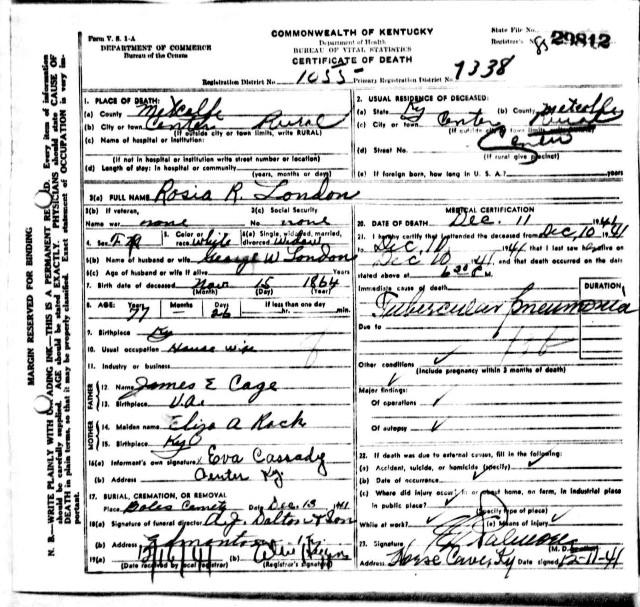 Form V. S. 1-A
DEPARTMENT OF COMMERCE
Bureau of the Census
COMMONWEALTH OF KENTUCKY
Department of Health
BUREAU OF VITAL STATISTICS
CERTIFICATE OF DEATH
State File No.
Registrar's No. 29812
Registration District No. 1055 Primary Registration District No. 7338
MARGIN RESERVED FOR BINDING
1. PLACE OF DEATH:
(a) County Metcalfe
(b) City or town Center Rural
(If outside city or town limits, write RURAL)
(c) Name of hospital or institution:
(If not in hospital or institution write street number or location)
(d) Length of stay: In hospital or community
(years, months or days)
2. USUAL RESIDENCE OF DECEASED:
(a) State Ky (b) County Metcalfe
(c) City or town Center Rural
(If outside city or town limits write RURAL)
(d) Street No. Center
(If rural give precinct)
(e) If foreign born, how long in U. S. A.? years
3(a) FULL NAME Rosia R. London
3(b) If veteran,
Name war none
3(c) Social Security
No. none
4. Sex F 5. Color or race White 6(a) Single, widowed, married, divorced Widow
6(b) Name of husband or wife George W London
6(c) Age of husband or wife if alive Years
7. Birth date of deceased Nov 15 1864
(Month) (Day) (Year)
8. AGE: Years 77 Months — Days 26 If less than one day hr. min.
9. Birthplace Ky
10. Usual occupation House wife
11. Industry or business
FATHER
12. Name James E Cage
13. Birthplace V.a.
MOTHER
14. Maiden name Eliza A Rock
15. Birthplace Ky
16(a) Informant's own signature Eva Cassady
(b) Address Center Ky.
17. BURIAL, CREMATION, OR REMOVAL
Place Cemety Date Dec. 13 1941
18(a) Signature of funeral director A. J. Dalton & Son
(b) Address Edmonton Ky
19(a) 12/16/41 (b)
(Date received by local registrar) (Registrar's signature)
MEDICAL CERTIFICATION
20. DATE OF DEATH Dec. 11 1941
21. I hereby certify that I attended the deceased from Dec 10 1941
Dec 10 1941 that I last saw her alive on
Dec 10 1941 and that death occurred on the date
stated above at 6:30 P. m.
Immediate cause of death
DURATION
Tubercular Pneumonia
Due to
Other conditions
(Include pregnancy within 3 months of death)
Major findings:
Of operations
Of autopsy
22. If death was due to external causes, fill in the following:
(a) Accident, suicide, or homicide (specify)
(b) Date of occurrence
(c) Where did injury occur? In or about home, on farm, in industrial place
in public place?
(Specify type of place)
While at work? (e) Means of injury
23. Signature
(M. D.
Address Horse Cave, Ky Date signed 12-11-41